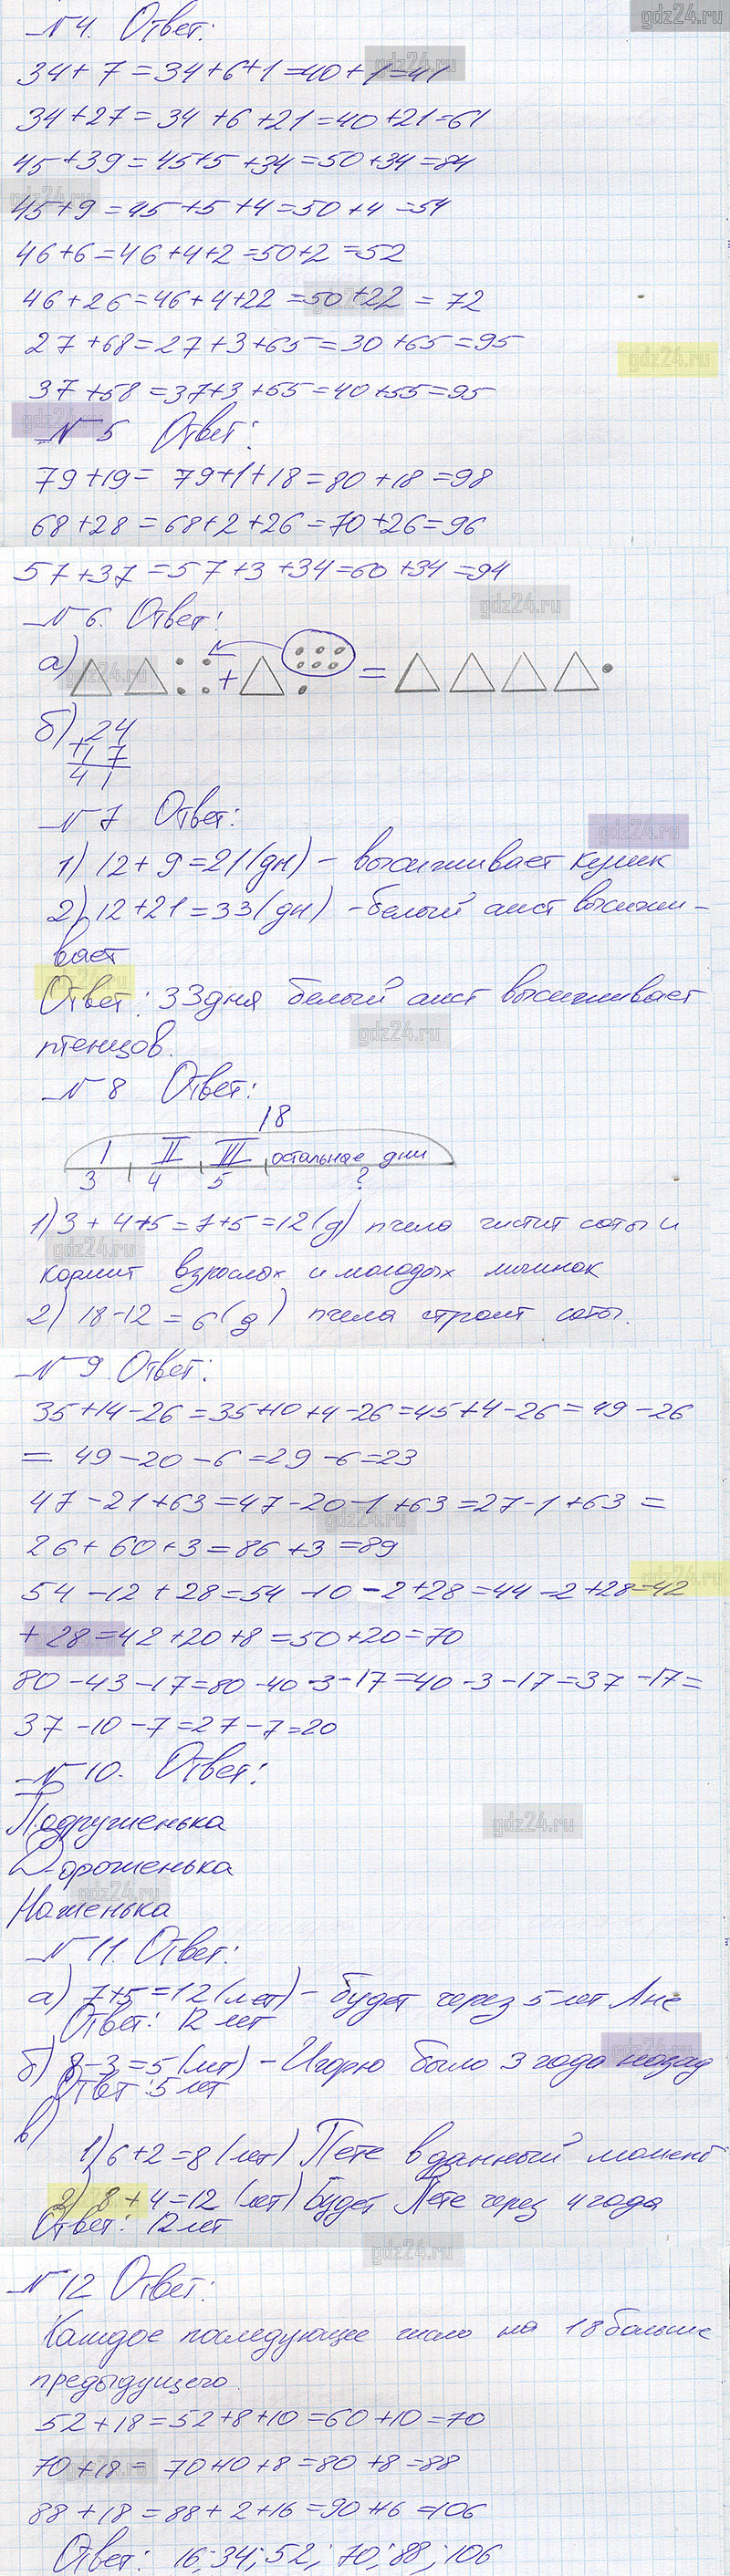 gdz24.ru
№4. Ответ:
34+7=34+6+1=40+1=41
34+27=34+6+21=40+21=61
45+39=45+5+34=50+34=84
45+9=45+5+4=50+4=54
46+6=46+4+2=50+2=52
46+26=46+4+22=50+22=72
27+68=27+3+65=30+65=95
37+58=37+3+55=40+55=95
№5 Ответ:
79+19=79+1+18=80+18=98
68+28=68+2+26=70+26=96
57+37=57+3+34=60+34=94
№6. Ответ:
а) + =
б) 24
+17
41
№7 Ответ:
1) 12+9=21(дн) - высиживает кулик
2) 12+21=33(дн) - белый аист высижи-
вает
Ответ: 33 дня белый аист высиживает
птенцов.
№8 Ответ:
18
I II III остальные дни
3 4 5 ?
1) 3+4+5=7+5=12(д) пчела чистит соты и
кормит взрослых и молодых личинок
2) 18-12=6(д) пчела строит соты.
№9. Ответ:
35+14-26=35+10+4-26=45+4-26=49-26
=49-20-6=29-6=23
47-21+63=47-20-1+63=27-1+63=
26+60+3=86+3=89
54-12+28=54-10-2+28=44-2+28=42
+28=42+20+8=50+20=70
80-43-17=80-40-3-17=40-3-17=37-17=
37-10-7=27-7=20
№10. Ответ:
Подруженька
Дороженька
Наженька
№11. Ответ:
а) 7+5=12(лет) - будет через 5 лет Ане
Ответ: 12 лет
б) 8-3=5(лет) - Игорю было 3 года назад
Ответ: 5 лет
в)
1) 6+2=8(лет) Пете в данный момент
2) 8+4=12(лет) будет Пете через 4 года
Ответ: 12 лет
№12 Ответ:
Каждое последующее число на 18 больше
предыдущего.
52+18=52+8+10=60+10=70
70+18=70+10+8=80+8=88
88+18=88+2+16=90+16=106
Ответ: 16; 34; 52; 70; 88; 106